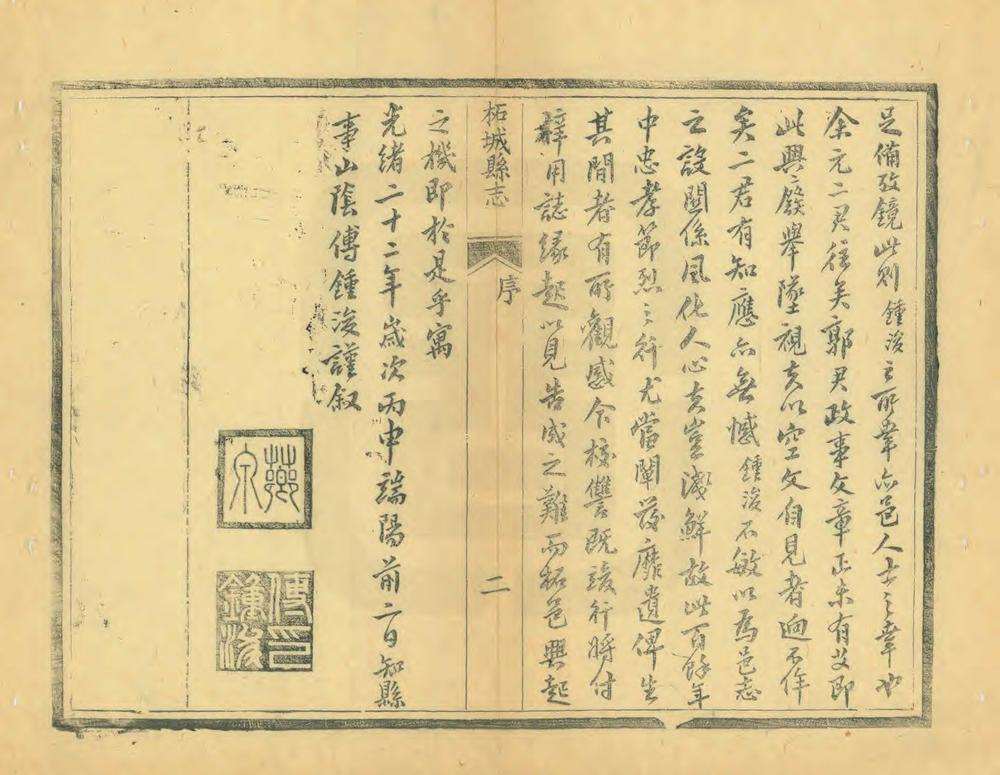 足備攷鏡此則鍾浚之所幸亦邑人士之幸也
余元二君往矣郭君政事文章正未有艾即
此興廢舉墜視夫以空文自見者迥不侔
矣二君有知應亦無憾鍾浚不敏以為邑志
之設關係風化人心夫豈淺鮮故此百餘年
中忠孝節烈之行尤當闡發靡遺俾生
其間者有所觀感今校讐既竣行將付
梓用誌緣起以見告成之難而柘邑興起
柘城縣志
序
二
之機即於是乎寓
光緒二十二年歲次丙申端陽前二日知縣
事山陰傅鍾浚謹叙
燕泉
傅鍾浚印